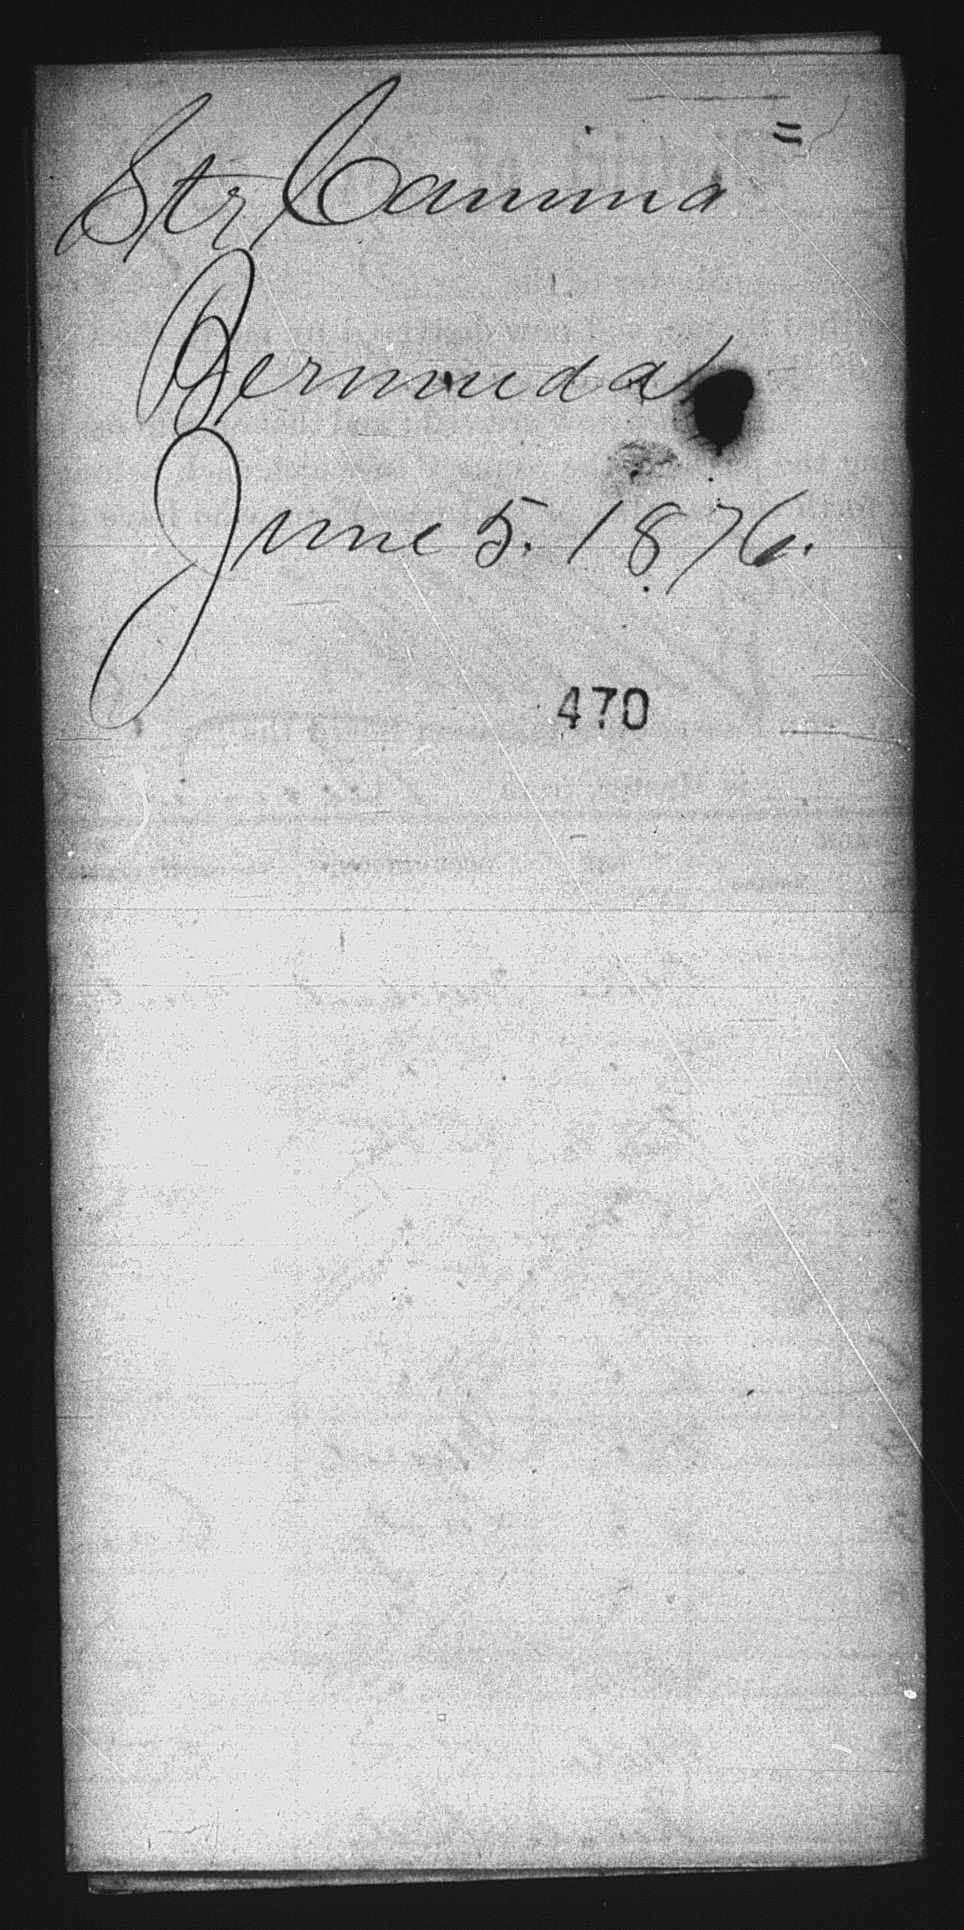 Str Camima
Bermuda
June 5. 1876.
470